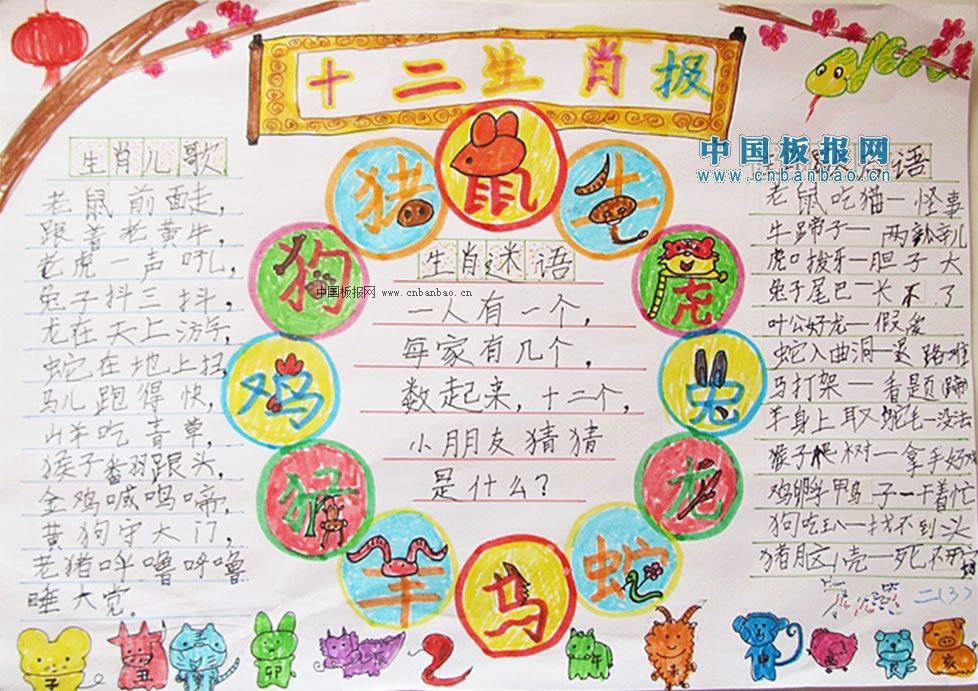 十二生肖报
中国板报网
www.cnbanbao.cn
生肖儿歌
老鼠前面走，
跟着老黄牛，
老虎一声吼，
兔子抖三抖，
龙在天上游，
蛇在地上扭，
马儿跑得快，
山羊吃青草，
猴子翻跟头，
金鸡喊鸣啼，
黄狗守大门，
老猪呼噜呼噜
睡大觉。
猪
鼠
牛
虎
兔
龙
蛇
马
羊
猴
鸡
狗
生肖迷语
中国板报网 www.cnbanbao.cn
一人有一个，
每家有几个，
数起来，十二个，
小朋友猜猜
是什么？
语
老鼠吃猫一怪事
牛蹄子一两瓣儿
虎口拔牙一胆子大
兔子尾巴一长不了
叶公好龙一假爱
蛇入曲洞一退路难
马打架一看题蹄
羊身上取鸵毛一没法
猴子爬树一拿手好
鸡孵鸭子一干着忙
狗吃 一找不到头
猪 壳一死不
二（3）
子
丑
卯
午
未
申
酉
亥